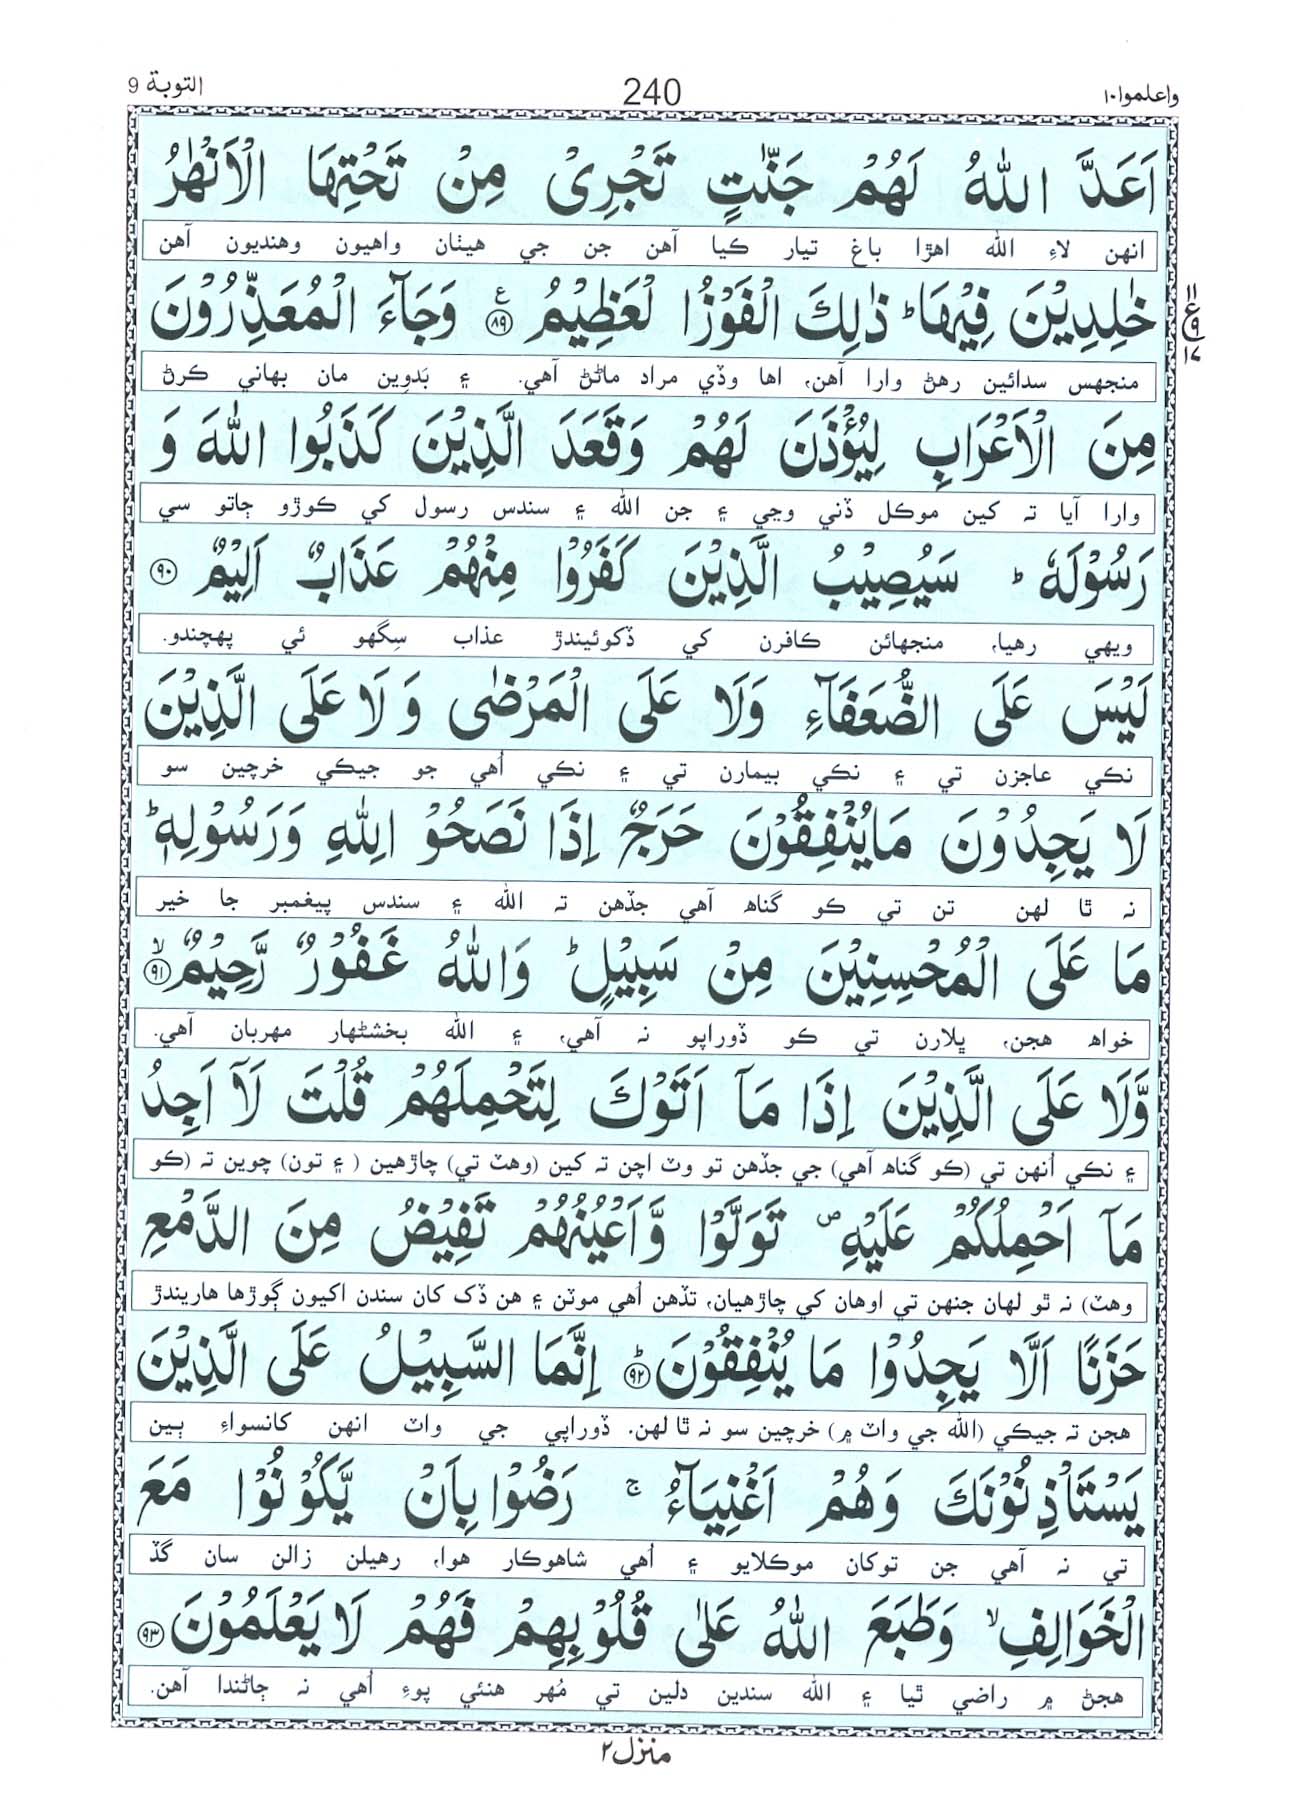 واعلموا۱۰ 240 التوبة 9
اَعَدَّ اللّٰهُ لَهُمْ جَنّٰتٍ تَجْرِیْ مِنْ تَحْتِهَا الْاَنْهٰرُ
انهن لاءِ الله اهڙا باغ تيار ڪيا آهن جن جي هيٺان واهيون وهنديون آهن
خٰلِدِیْنَ فِیْهَا ؕ ذٰلِكَ الْفَوْزُ الْعَظِیْمُ ﴿۸۹﴾ ع وَجَآءَ الْمُعَذِّرُوْنَ
۱۱ ع ۹ ۱۷
منجهس سدائين رهڻ وارا آهن، اها وڏي مراد ماڻڻ آهي. ۽ بَدوِين مان بهاني ڪرڻ
مِنَ الْاَعْرَابِ لِیُؤْذَنَ لَهُمْ وَقَعَدَ الَّذِیْنَ كَذَبُوا اللّٰهَ وَ
وارا آيا ته کين موڪل ڏني وڃي ۽ جن الله ۽ سندس رسول کي ڪوڙو ڄاتو سي
رَسُوْلَهٗ ؕ سَیُصِیْبُ الَّذِیْنَ كَفَرُوْا مِنْهُمْ عَذَابٌ اَلِیْمٌ ﴿۹۰﴾
ويهي رهيا، منجهائن ڪافرن کي ڏکوئيندڙ عذاب سِگهو ئي پهچندو.
لَیْسَ عَلَی الضُّعَفَآءِ وَلَا عَلَی الْمَرْضٰی وَلَا عَلَی الَّذِیْنَ
نڪي عاجزن تي ۽ نڪي بيمارن تي ۽ نڪي اُهي جو جيڪي خرچين سو
لَا یَجِدُوْنَ مَایُنْفِقُوْنَ حَرَجٌ اِذَا نَصَحُوْا لِلّٰهِ وَرَسُوْلِهٖ ؕ
نه ٿا لهن تن تي ڪو گناه آهي جڏهن ته الله ۽ سندس پيغمبر جا خير
مَا عَلَی الْمُحْسِنِیْنَ مِنْ سَبِیْلٍ ؕ وَاللّٰهُ غَفُوْرٌ رَّحِیْمٌ ﴿۹۱﴾ ۙ
خواه هجن، ڀلارن تي ڪو ڏوراپو نه آهي، ۽ الله بخشڻهار مهربان آهي.
وَّلَا عَلَی الَّذِیْنَ اِذَا مَآ اَتَوْكَ لِتَحْمِلَهُمْ قُلْتَ لَآ اَجِدُ
۽ نڪي اُنهن تي (ڪو گناه آهي) جي جڏهن تو وٽ اچن ته کين (وهٽ تي) چاڙهين ( ۽ تون) چوين ته (ڪو
مَآ اَحْمِلُكُمْ عَلَیْهِ ۪ تَوَلَّوْا وَّاَعْیُنُهُمْ تَفِیْضُ مِنَ الدَّمْعِ
وهٽ) نه ٿو لهان جنهن تي اوهان کي چاڙهيان، تڏهن اُهي موٽن ۽ هن ڏک کان سندن اکيون ڳوڙها هاريندڙ
حَزَنًا اَلَّا یَجِدُوْا مَا یُنْفِقُوْنَ ؕ﴿۹۲﴾ اِنَّمَا السَّبِیْلُ عَلَی الَّذِیْنَ
هجن ته جيڪي (الله جي واٽ ۾) خرچين سو نه ٿا لهن. ڏوراپي جي واٽ انهن کانسواءِ ٻين
یَسْتَاْذِنُوْنَكَ وَهُمْ اَغْنِیَآءُ ۚ رَضُوْا بِاَنْ یَّكُوْنُوْا مَعَ
تي نه آهي جن توکان موڪلايو ۽ اُهي شاهوڪار هوا، رهيلن زالن سان گڏ
الْخَوَالِفِ ۙ وَطَبَعَ اللّٰهُ عَلٰی قُلُوْبِهِمْ فَهُمْ لَا یَعْلَمُوْنَ ﴿۹۳﴾
هجڻ ۾ راضي ٿيا ۽ الله سندين دلين تي مُهر هنئي پوءِ اُهي نه ڄاڻندا آهن.
منزل۲